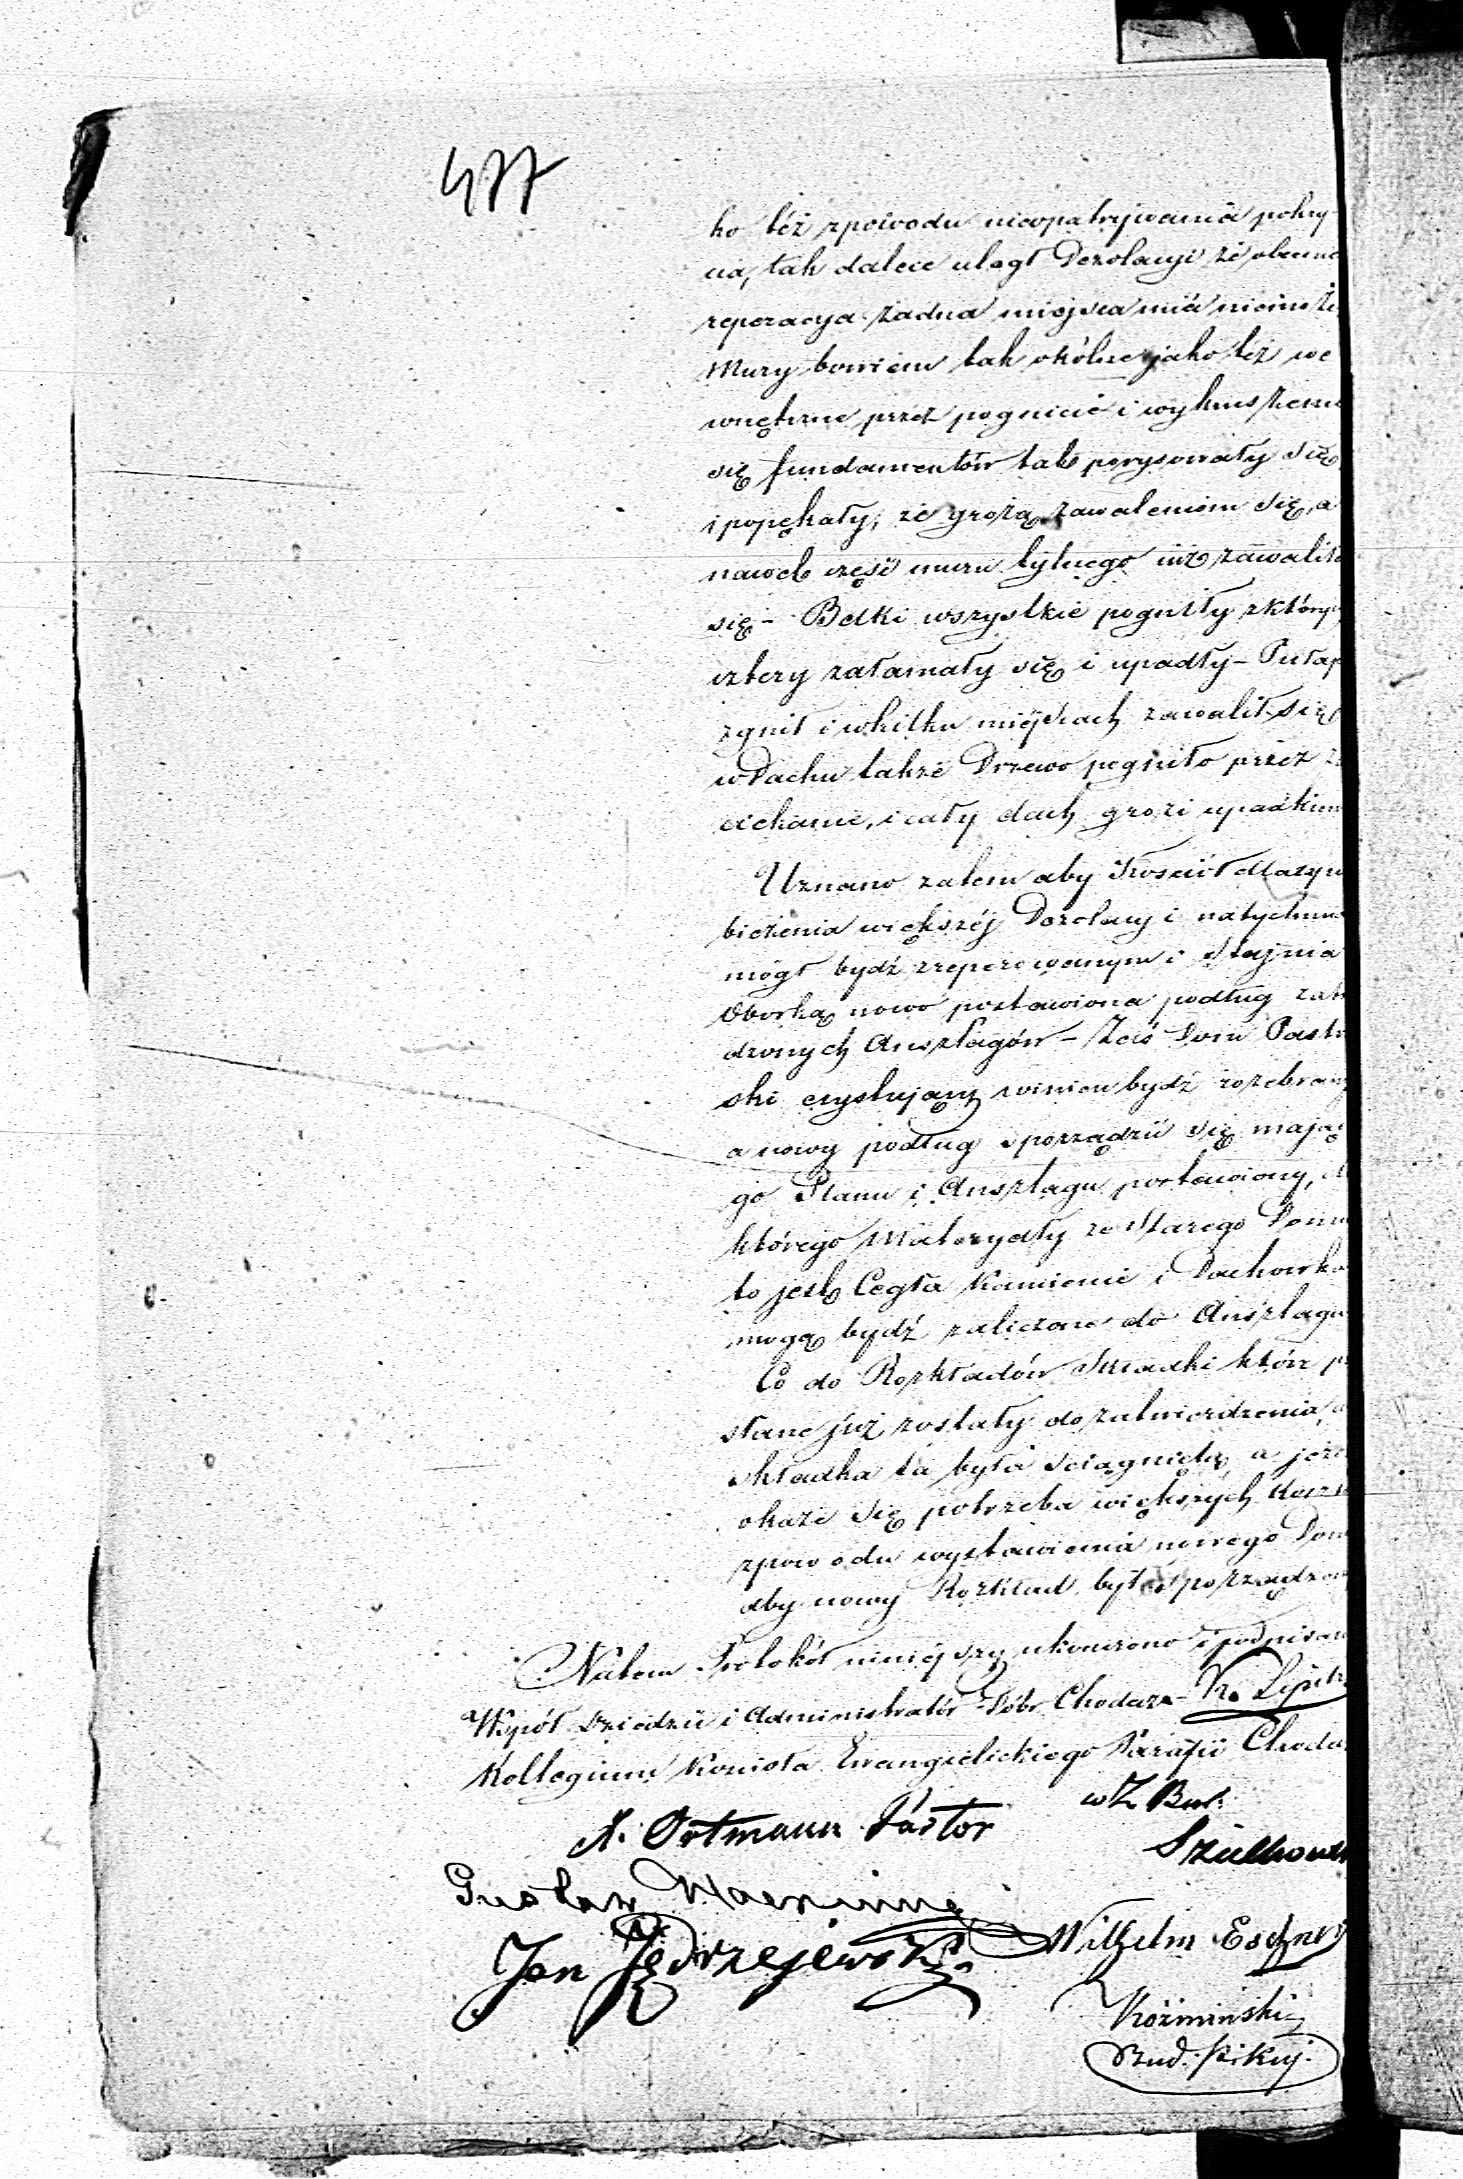 477
ko też zpowodu nieopatrywania pokry-
cia, tak dalece uległ Dezolacyi że obecnie
reperacya żadna miejsca mieć niemoże
Mury bowiem tak okólne jako też we
wnętrzne przez pognicie i wykruszenie
się fundamentów tak porysowały się
i popękały, że grożą zawaleniem się, a
nawet część muru tylnego już zawaliła
się - Belki wszystkie pogniły z który
cztery załamały się i upadły - Pułap
zgnił i w kilku miejscach zawalił się
w Dachu także Drzewo pogniło przez
ciekanie, i cały dach grozi upadkiem
Uznano zatem aby Kościół dla zapo
bieżenia większéj Dezolacyi natychmia
mógł bydź zreperowanym i Stajnia
Oborką nowo postawiona podług zatw
dzonych Anszlagów - Zaś Dom Pasto
ski exystujący winien bydź rozebrany
a nowy podług sporządzić się mając
go Planu i Anszlagu postawiony, d
którego Materyały ze Starego Domu
to jest Cegła Kamienie i Dachówka
mogą bydź zaliczone do Anszlagu
Co do Rozkładów Składki które p
słane już zostały do zatwierdzenia, a
składka ta była ściągnięta, a jeże
okaże się potrzeba większych Kosz
zpowodu wystawienia nowego Dom
aby nowy Rozkład był sporządzon
Natem Protokół niniéjszy ukończono i podpisan
Współ Dziedzic i Administrator Dóbr Chodecz -
Kollegium Kościoła Ewangielickiego Parafii Chode
w Z Bur.
A. Ortmann Pastor
Gustav
Jan Jędrzejewski
Wilhelm
Koźmiński
Bud.